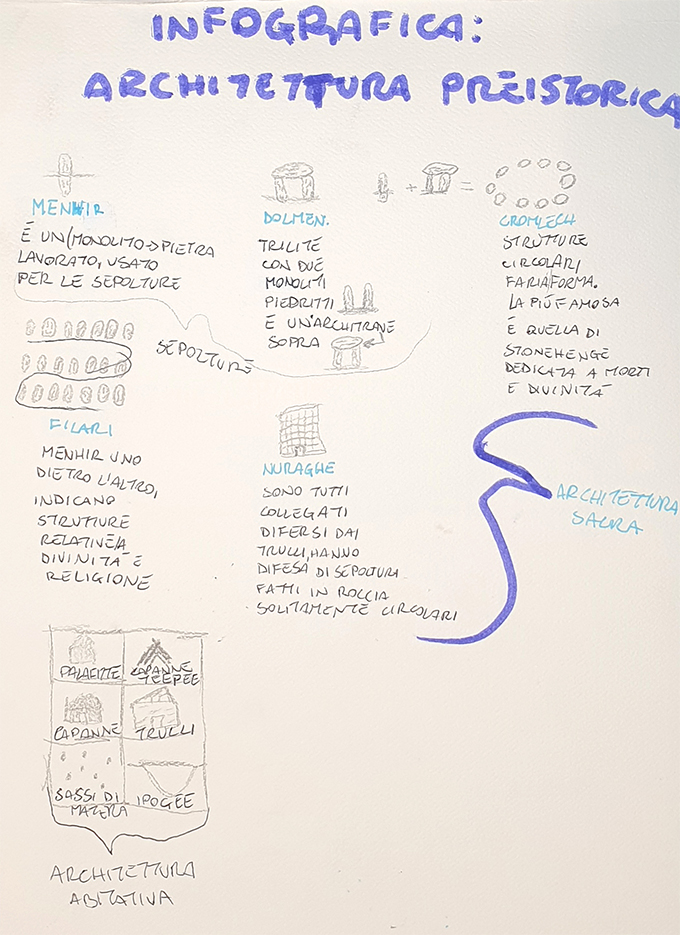 INFOGRAFICA:
ARCHITETTURA PREISTORICA
MENHIR
È UN/MONOLITO→PIETRA
LAVORATO, USATO
PER LE SEPOLTURE
DOLMEN.
TRILITE
CON DUE
MONOLITI
PIEDRITTI
E UN'ARCHITRAVE
SOPRA
+
=
CROMLECH
STRUTTURE
CIRCOLARI
FARIA FORMA.
LA PIÙ FAMOSA
È QUELLA DI
STONEHENGE
DEDICATA A MORTI
E DIVINITÀ
SEPOLTURE
FILARI
MENHIR UNO
DIETRO L'ALTRO,
INDICANO
STRUTTURE
RELATIVE/A
DIVINITÀ E
RELIGIONE
NURAGHE
SONO TUTTI
COLLEGATI
DIFERSI DAI
TRULLI, HANNO
DIFESA DI SEPOLTURA
FATTI IN ROCCIA
SOLITAMENTE CIRCOLARI
ARCHITETTURA
SACRA
PALAFITTE
CAPANNE
TEEPEE
CAPANNE
TRULLI
SASSI DI
MATERA
IPOGEE
ARCHITETTURA
ABITATIVA